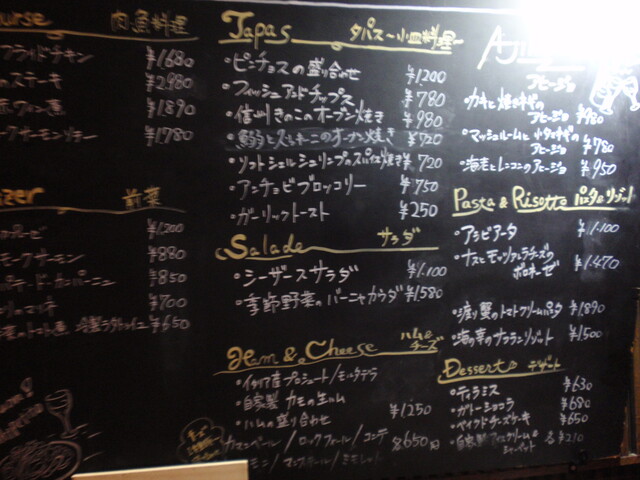 肉・魚料理
フライドチキン ¥1680
ステーキ ¥2,980
¥1,890
¥1780
前菜
¥1,200
モークサーモン ¥880
パテ・ド・カンパーニュ ¥850
マリネ ¥700
のトマト煮 冷製ラタトゥイユ ¥650
Tapas タパス〜小皿料理〜
・ピンチョスの盛り合わせ ¥1200
・フィッシュアンドチップス ¥780
・信州きのこのオーブン焼き ¥980
のオーブン焼き ¥720
・ソフトシェルシュリンプのスパイス焼き ¥720
・アンチョビブロッコリー ¥750
・ガーリックトースト ¥250
Salade サラダ
・シーザースサラダ ¥1.100
・季節野菜のバーニャカウダ ¥1580
Ham & Cheese ハム&チーズ
・イタリア産プロシュート/モルタデラ
・自家製 カモの生ハム
・ハムの盛り合わせ ¥1250
カマンベール/ロックフォール/コンテ 各650円
モン/マンステール/ミモレット
アヒージョ
・カキと焼きネギのアヒージョ ¥980
・マッシュルームと のアヒージョ ¥780
・海老とレンコンのアヒージョ ¥950
Pasta & Risotto パスタ&リゾット
・アラビアータ ¥1.100
・ナスとモッツァレラチーズの
ボロネーゼ ¥1.470
・渡り蟹のトマトクリームパスタ ¥1,890
・海の幸の リゾット ¥1,500
Dessert デザート
・ティラミス ¥630
・ガトーショコラ ¥680
・ベイクドチーズケーキ ¥650
・自家製アイスクリーム& 各¥210
シャーベット